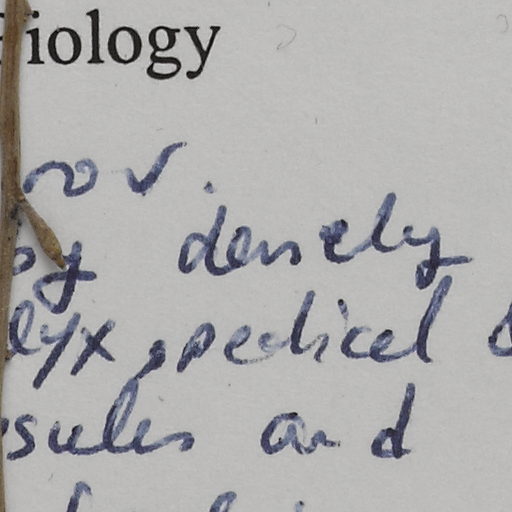 iology
nov.
by densely
lyx, pedicel &
psules and